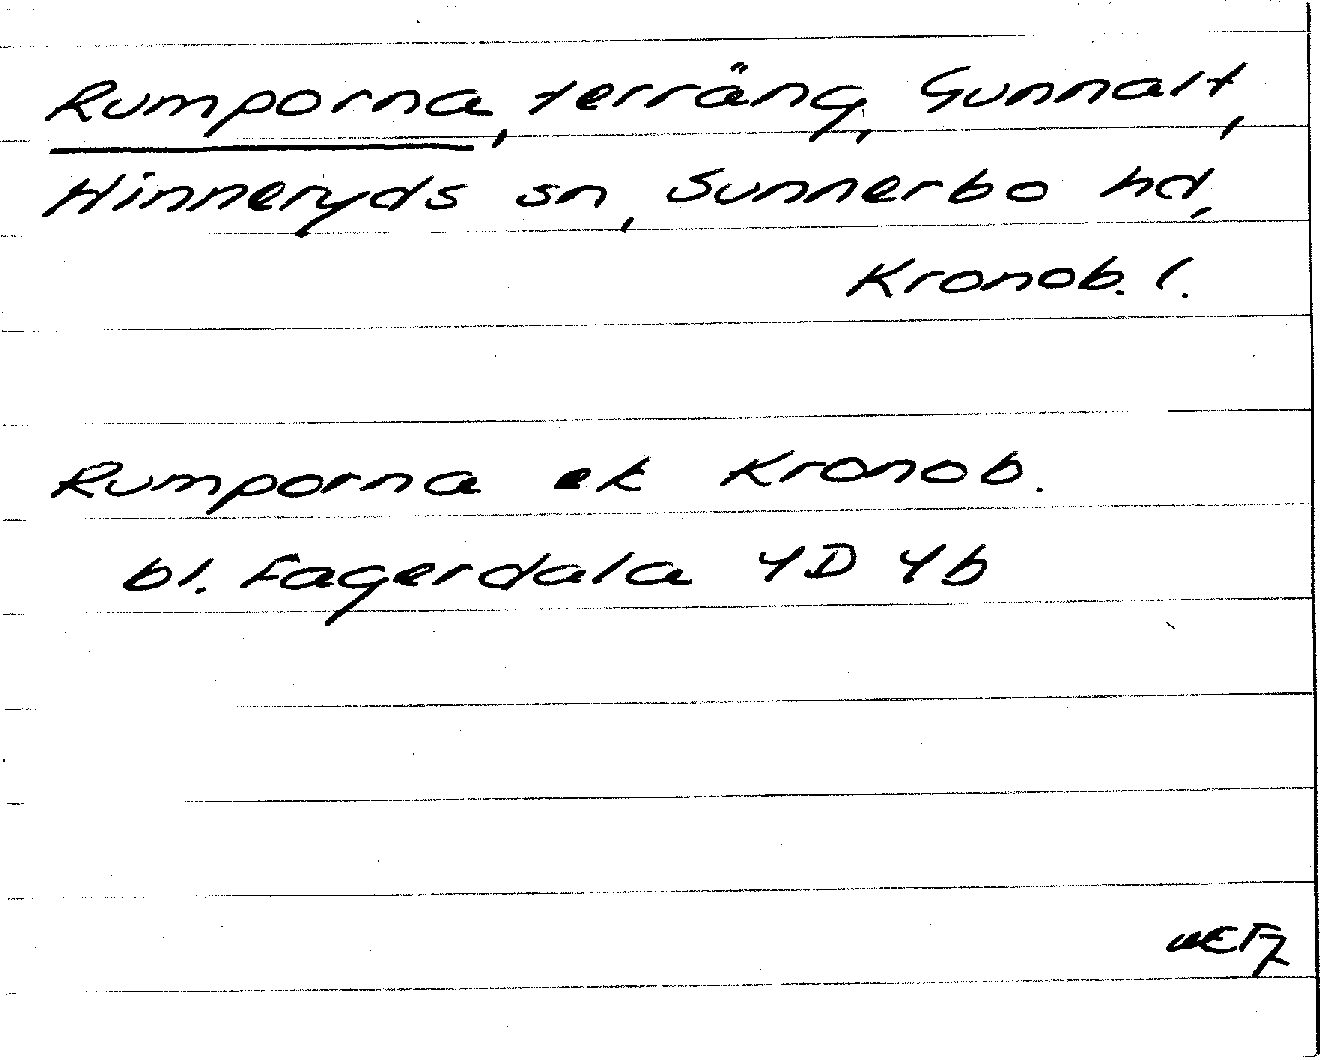 Rumporna, terräng, Sunnalt,
Hinneryds sn, Sunnerbo hd,
Kronob. l.
Rumporna ek Kronob.
bl. Fagerdala 4D 4b